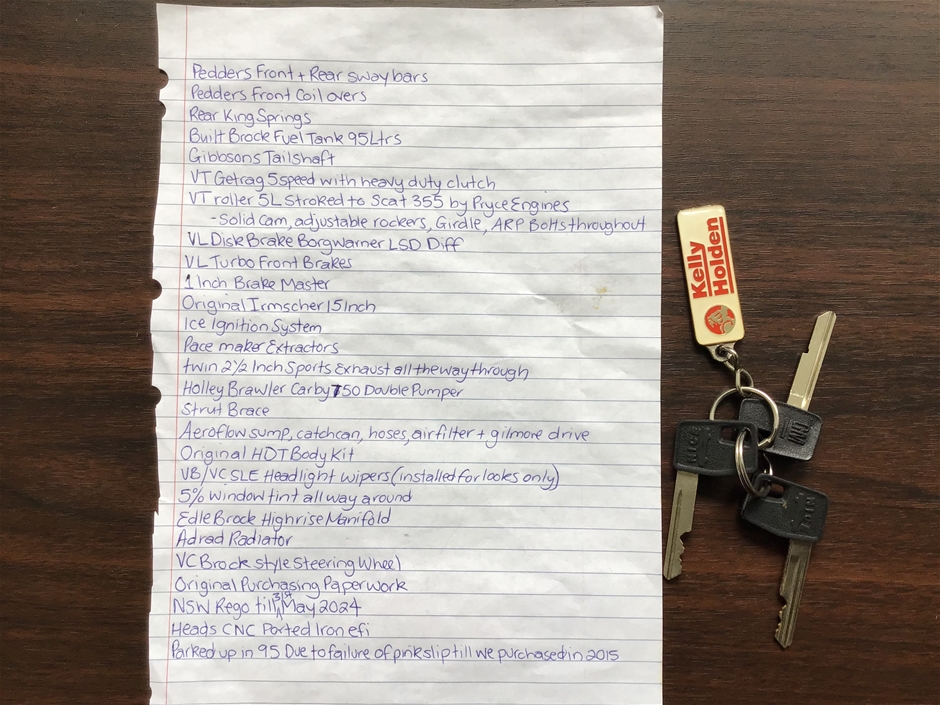 Pedders Front + Rear sway bars
Pedders Front Coilovers
Rear King Springs
Built Brock Fuel Tank 95Ltrs
Gibbsons Tailshaft
VT Getrag 5 speed with heavy duty clutch
VT roller 5L Stroked to Scat 355 by Pryce Engines
-Solid Cam, adjustable rockers, Girdle, ARP Bolts throughout
VL Disk Brake Borgwarner LSD Diff
VL Turbo Front Brakes
1 Inch Brake Master
Original Irmscher 15 Inch
Ice Ignition System
Pace maker Extractors
twin 2 1/2 Inch Sports Exhaust all the way through
Holley Brawler Carby 750 Double Pumper
Strut Brace
Aeroflow sump, catchcan, hoses, airfilter + gilmore drive
Original HDT Body Kit
VB/VC SLE Headlight wipers (installed for looks only)
5% window tint all way around
Edle Brock Highrise Manifold
Adrad Radiator
VC Brock style Steering Wheel
Original Purchasing Paperwork
NSW Rego till 31st May 2024
Heads CNC Ported Iron efi
Parked up in 95 Due to failure of pink slip till we purchased in 2015
Kelly
Holden